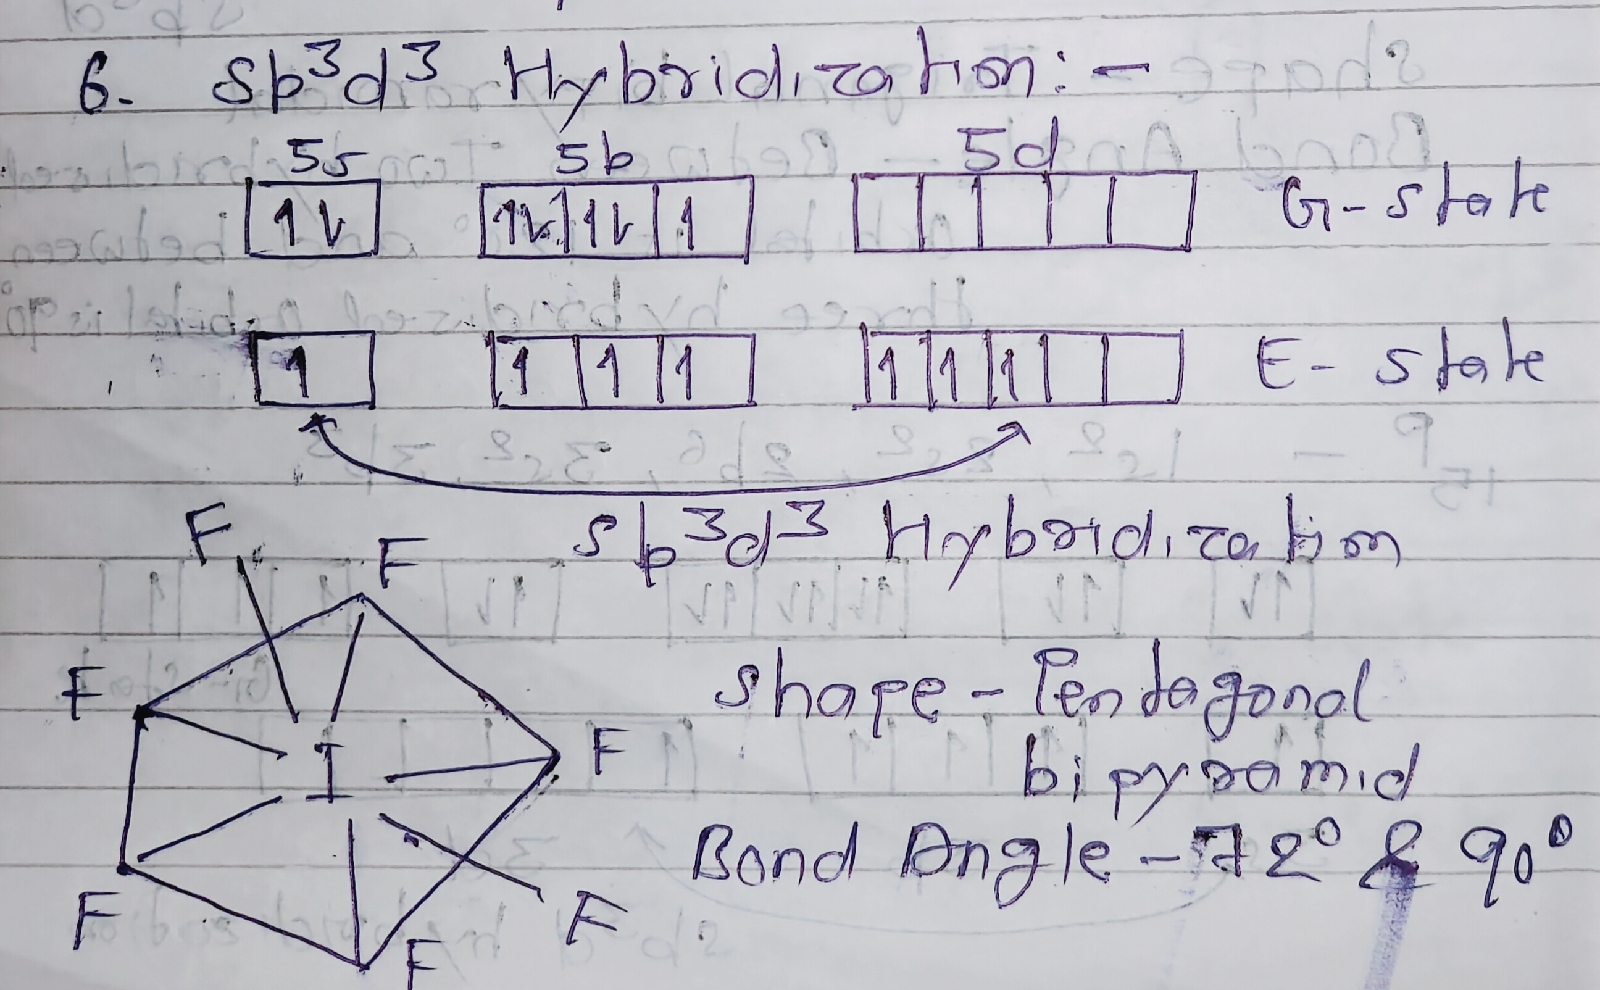 6. Sp³d³ Hybridization:-
5s 5p 5d
1⇂ 1⇂ 1⇂ 1 G-state
1 1 1 1 1 1 1 E-state
sp³d³ Hybridization
F F
F I F
F F F
Shape - Pentagonal
bipyramid
Bond Angle - 72° & 90°